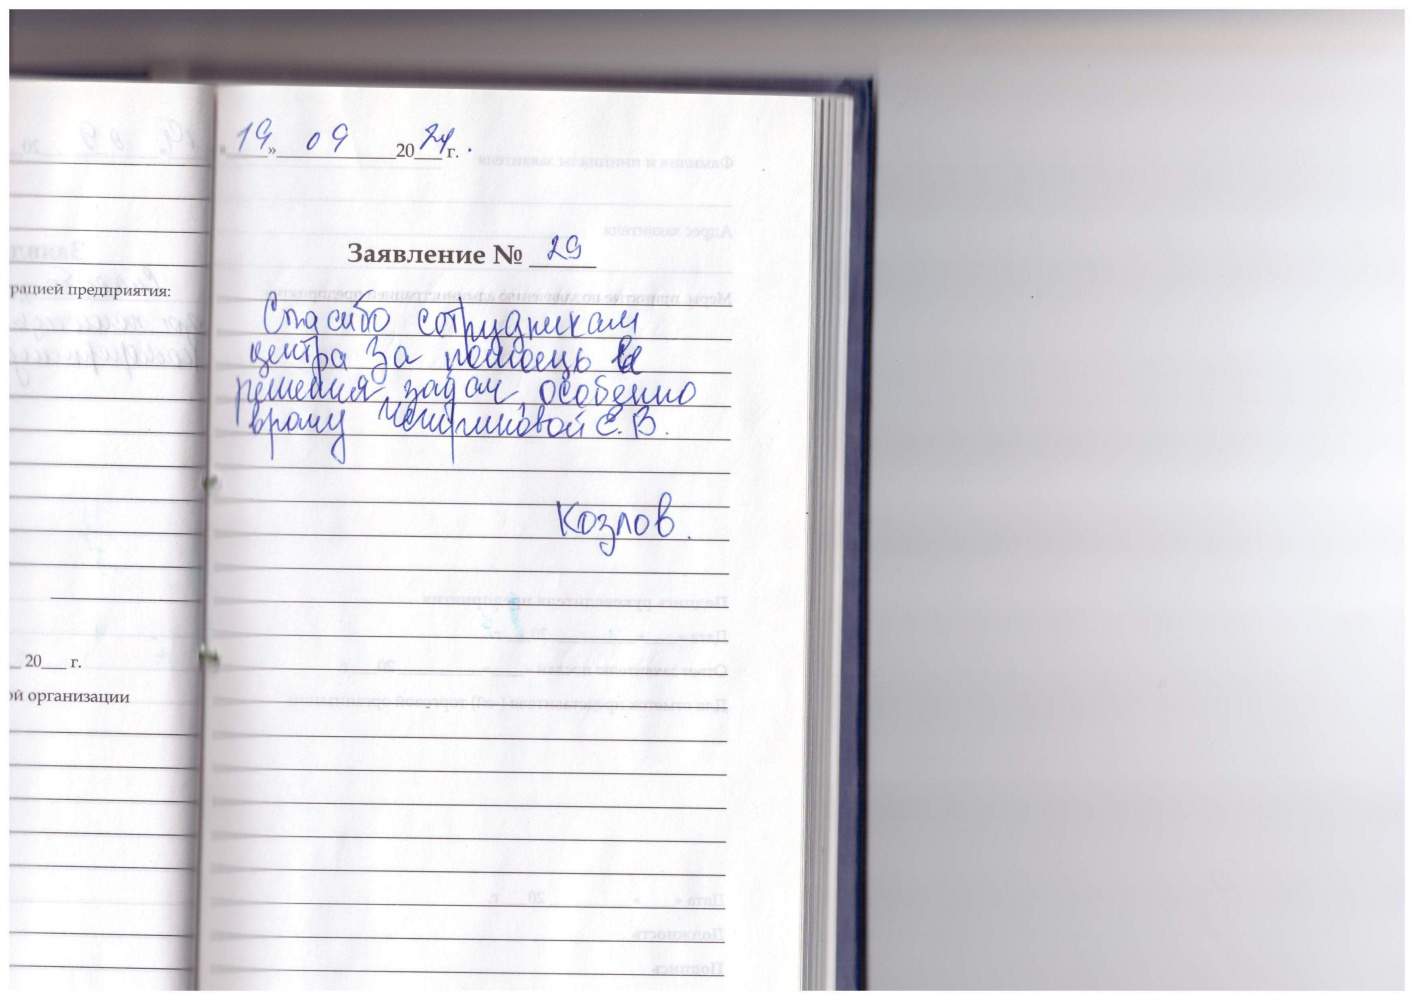 «19» 09 2024 г.
Заявление № 29
рацией предприятия:
Спасибо сотрудникам
центра за помощь в
решения задач, особенно
врачу Е.В.
Козлов.
20___ г.
ой организации